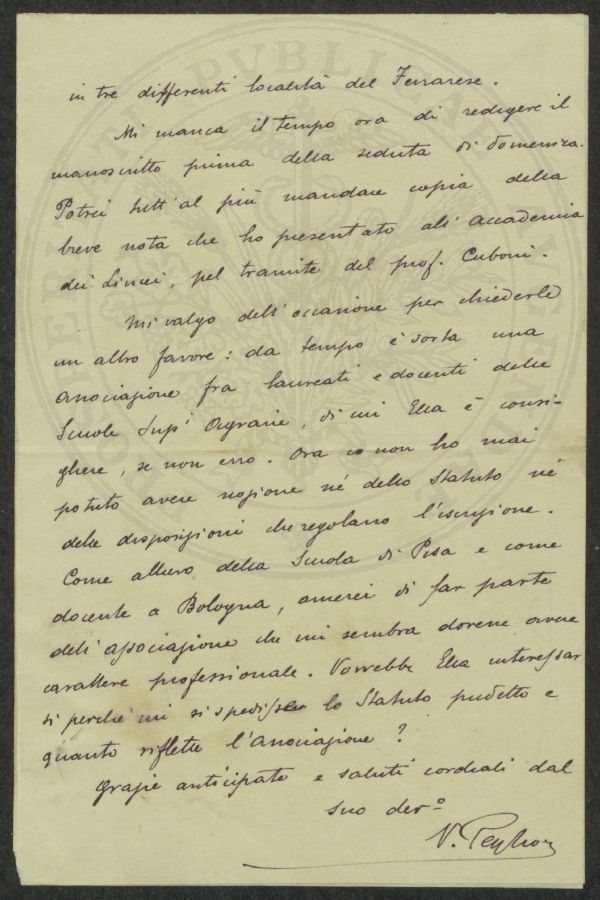 in tre differenti località del Ferrarese.
Mi manca il tempo ora di redigere il
manoscritto prima della seduta di domenica.
Potrei tutt'al più mandare copia della
breve nota che ho presentato all'Accademia
dei Lincei, pel tramite del prof. Cuboni.
Mi valgo dell'occasione per chiederle
un altro favore: da tempo è sorta una
associazione fra laureati e docenti delle
Scuole Supi Agrarie, di cui Ella è consi-
gliere, se non erro. Ora io non ho mai
potuto avere nozione nè dello Statuto nè
delle disposizioni che regolano l'iscrizione.
Come allievo della Scuola di Pisa e come
docente a Bologna, amerei di far parte
dell'associazione che mi sembra dovere avere
carattere professionale. Vorrebbe Ella interessar
si perchè mi si spedisse lo Statuto predetto e
quanto riflette l'Associazione?
Grazie anticipate e saluti cordiali dal
suo dev.o
V. Peglion